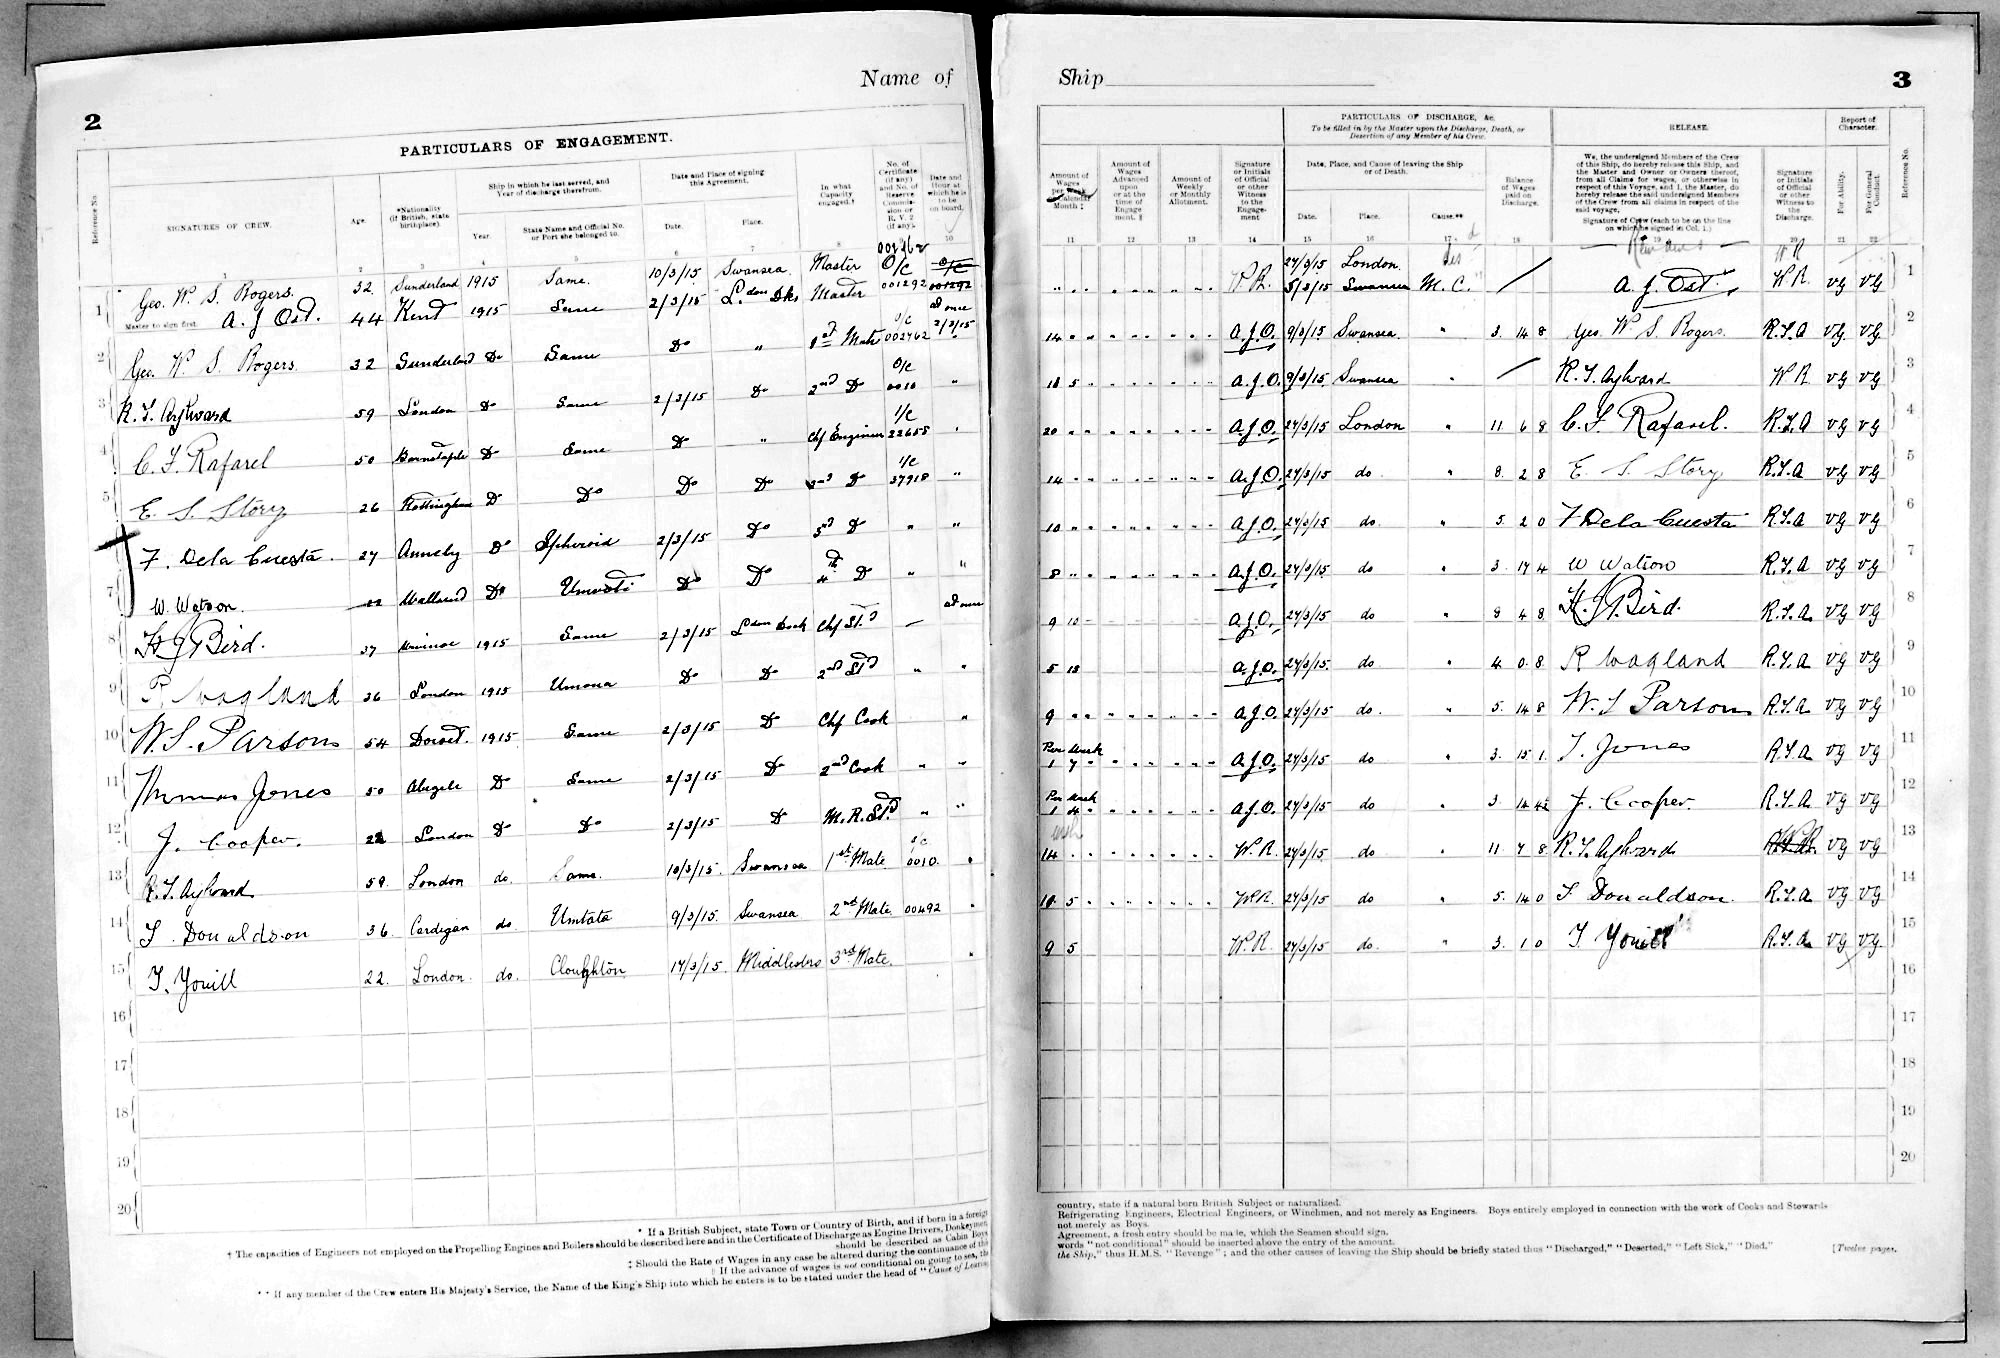 Name of
2
PARTICULARS OF ENGAGEMENT.
Reference No.
SIGNATURES OF CREW.
Age.
*Nationality (if British, state birthplace).
Ship in which he last served, and Year of discharge therefrom.
Year.
State Name and Official No. or Port she belonged to.
Date and Place of signing this Agreement.
Date.
Place.
In what Capacity engaged.†
No. of Certificate (if any) and No. of Reserve Commission or R. V. 2 (if any).
Date and Hour at which he is to be on board.
1 2 3 4 5 6 7 8 10
1 Geo. W. S. Rogers. 32 Sunderland 1915 Same. 10/3/15 Swansea Master O/C
Master to sign first. A. J. Ost. 44 Kent 1915 Same 2/3/15 L.don Dks Master 001292 001292
2 Geo. W. S. Rogers 32 Sunderland Do Same Do " 1st Mate 002762 At once 2/3/15
3 R. T. Aylward 59 London Do Same 2/3/15 Do 2nd Do O/C 0010 "
4 C. F. Rafarel 50 Barnstaple Do Same Do " Chf Engineer 1/C 22658
5 E. S. Story 26 Nottingham Do Do Do Do 2nd Do 1/C 37918 "
F. Dela Cuesta. 27 Annesley Do Spheroid 2/3/15 Do 3rd Do " "
7 W. Watson. Wallsend Do Umvoti Do Do 4th Do " "
8 H J Bird. 37 1915 Same 2/3/15 Ldon Dock Chf Std — At once
9 R Wagland 36 London 1915 Umona Do Do 2nd Std " "
10 W. S. Parsons 54 Dorset. 1915 Same 2/3/15 Do Chf Cook "
11 Thomas Jones 50 Abergele Do Same 2/3/15 Do 2nd Cook " "
12 J. Cooper. 22 London Do Do 2/3/15 Do M. R. Std. " "
13 R. T. Aylward 59. London do. Same. 10/3/15. Swansea 1st Mate 0010. "
14 T. Donaldson 36. Cardigan do. Umtata 9/3/15. Swansea 2nd Mate 00492 "
15 T. Youill 22. London. do. Cloughton 17/3/15. Middlesbro 3rd Mate. "
16
17
18
19
20
* If a British Subject, state Town or Country of Birth, and if born in a foreign
† The capacities of Engineers not employed on the Propelling Engines and Boilers should be described here and in the Certificate of Discharge as Engine Drivers, Donkeymen,
should be described as Cabin Boys
‡ Should the Rate of Wages in any case be altered during the continuance of the
If the advance of wages is not conditional on going to sea, the
** If any member of the Crew enters His Majesty's Service, the Name of the King's Ship into which he enters is to be stated under the head of "Cause of Leaving
Ship
3
Amount of Wages per Week Calendar Month ‡
Amount of Wages Advanced upon or at the time of Engagement. §
Amount of Weekly or Monthly Allotment.
Signature or Initials of Official or other Witness to the Engagement
PARTICULARS OF DISCHARGE, &c.
To be filled in by the Master upon the Discharge, Death, or Desertion of any Member of his Crew.
Date, Place, and Cause of leaving the Ship or of Death.
Date.
Place.
Cause.**
Balance of Wages paid on Discharge.
RELEASE.
We, the undersigned Members of the Crew of this Ship, do hereby release this Ship, and the Master and Owner or Owners thereof, from all Claims for wages, or otherwise in respect of this Voyage, and I, the Master, do hereby release the said undersigned Members of the Crew from all claims in respect of the said voyage.
Signature of Crew (each to be on the line on which he signed in Col. 1.)
Signature or Initials of Official or other Witness to the Discharge.
Report of Character.
For Ability.
For General Conduct.
Reference No.
11 12 13 14 15 16 17 18 19 20 21 22
27/3/15 London W R
W. R. 5/3/15 Swansea M. C. A. J. Ost. W. R. VG VG 1
14 A.J.O. 9/3/15 Swansea. " 3. 14 8 Geo. W. S. Rogers. R.T.A VG. VG. 2
10 5 A.J.O. 9/3/15. Swansea " R. T. Aylward W R VG VG 3
20 A.J.O. 27/3/15 London " 11 6 8 C. F. Rafarel. R.T.A VG VG 4
14 A.J.O. 27/3/15 do. " 8. 2 8 E. S. Story R.T.A VG VG 5
10 A.J.O. 27/3/15 do. " 5. 2 0 F Dela Cuesta R.T.A VG VG 6
8 A.J.O. 27/3/15. do " 3. 17 4 W Watson R.T.A VG VG 7
9 10 A.J.O. 27/3/15 do " 8 4 8 H. J Bird. R.T.A. VG VG 8
5 15 A.J.O. 27/3/15. do " 4 0. 8 R Wagland R.T.A. VG VG 9
9 A.J.O. 27/3/15. do. " 5. 14 8 W. S Parsons R.T.A. VG VG 10
Per Week 1 7 A.J.O. 27/3/15 do " 3. 15 1. T. Jones R.T.A VG VG 11
Per Week 1 4 A.J.O. 27/3/15 do " 3. 14 J. Cooper. R.T.A VG VG 12
14 W. R. 27/3/15 do. " 11 7 8 R. T. Aylward VG VG 13
10. 5 W.R. 27/3/15 do " 5. 14 0 T Donaldson. R.T.A VG VG 14
9 5 W.R. 27/3/15 do. " 3. 1 0 T Youill R.T.A. VG VG 15
16
17
18
19
20
country, state if a natural born British Subject or naturalized.
Refrigerating Engineers, Electrical Engineers, or Winchmen, and not merely as Engineers. Boys entirely employed in connection with the work of Cooks and Stewards
not merely as Boys.
Agreement, a fresh entry should be made, which the Seamen should sign.
words "not conditional" should be inserted above the entry of the amount.
the Ship," thus H.M.S. "Revenge"; and the other causes of leaving the Ship should be briefly stated thus "Discharged," "Deserted," "Left Sick," "Died."
[Twelve pages.